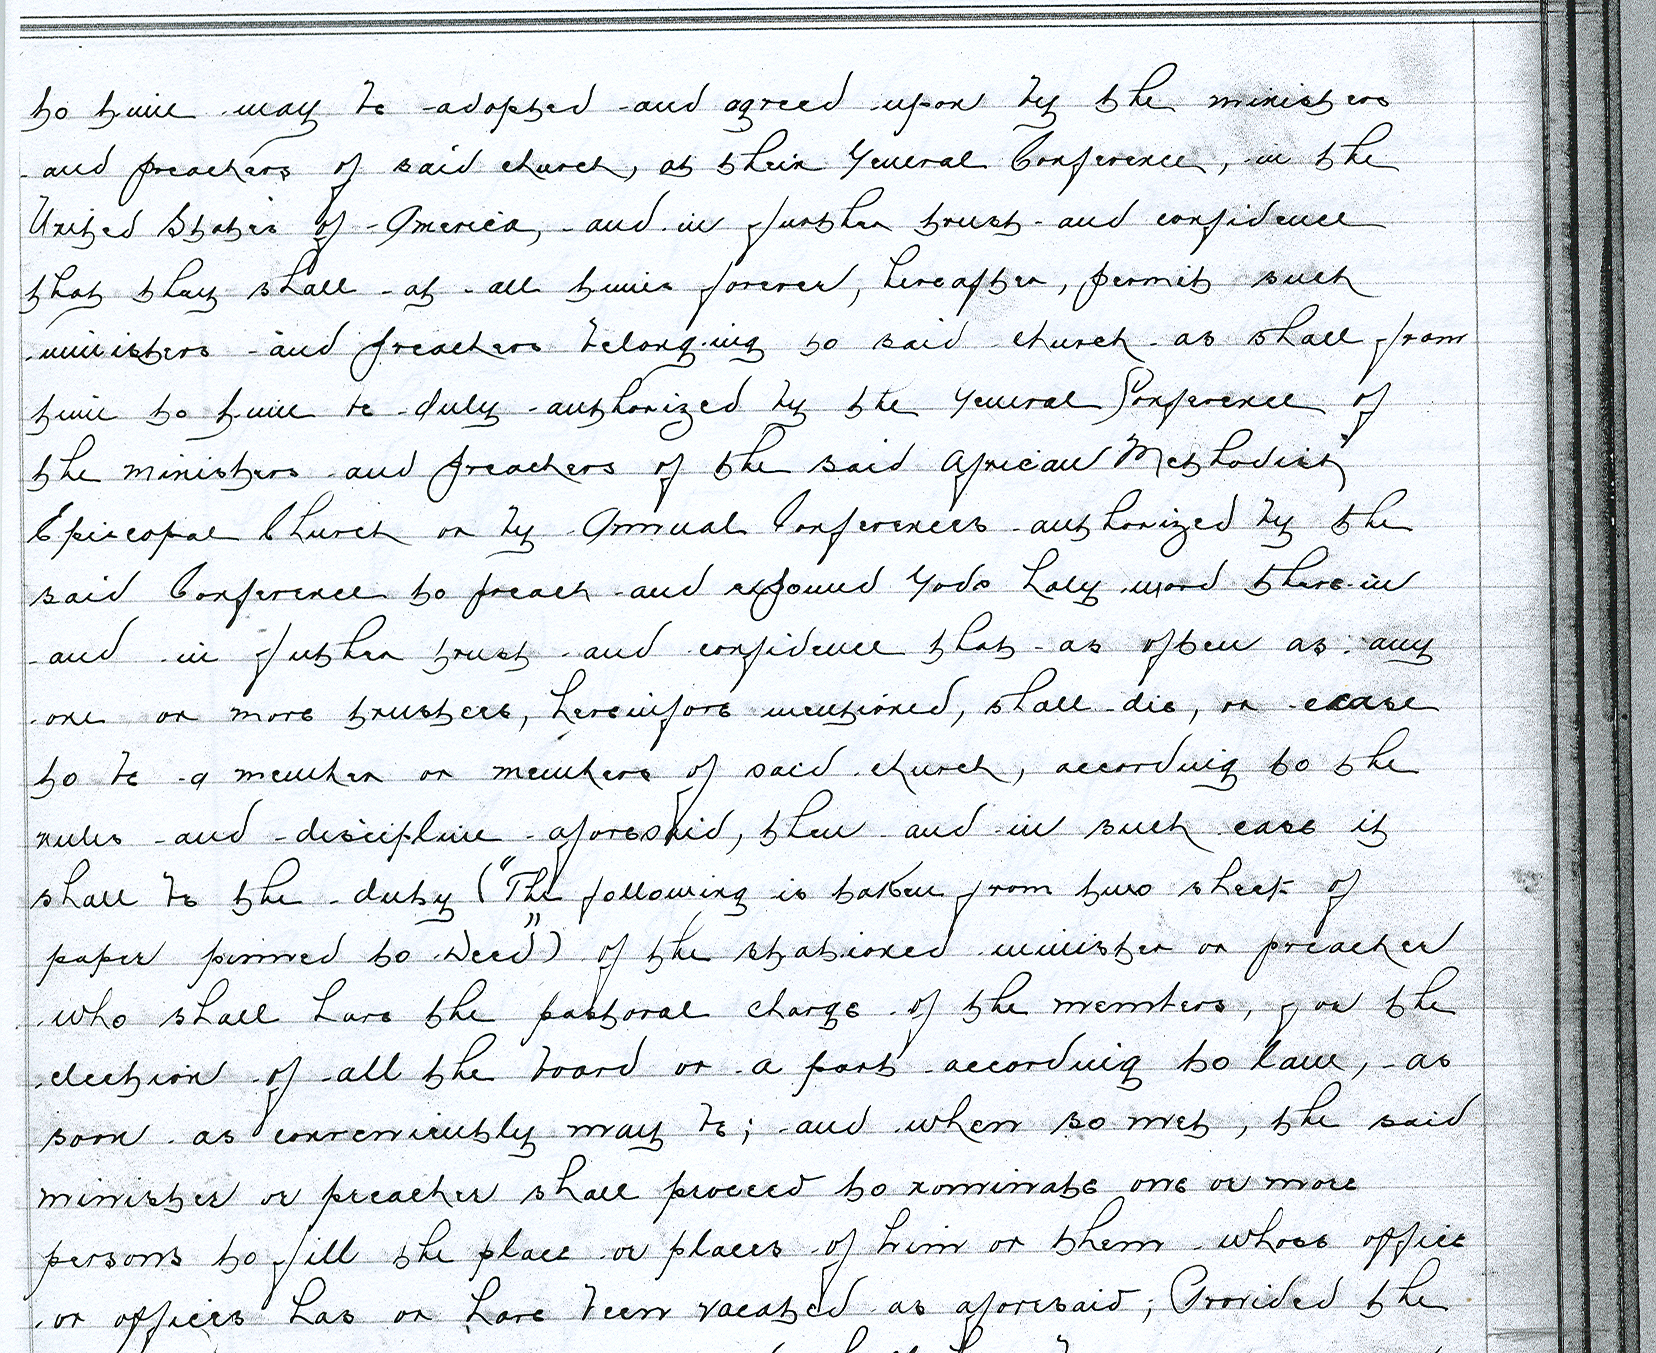 to time may be adopted and agreed upon by the ministers
and preachers of said church, at their General Conference, in the
United States of America, and in further trust and confidence
that they shall at all times forever, hereafter, permit such
ministers and preachers belonging to said church as shall from
time to time be duly authorized by the General Conference of
the ministers and preachers of the said African Methodist
Episcopal Church or by Annual Conferences authorized by the
said Conference to preach and expound Gods holy word therein
and in futher trust and confidence that as often as any
one or more trustees, hereinfore mentioned, shall die, or cease
to be a member or members of said church, according to the
rules and discipline aforesaid, then and in such case it
shall be the duty ("The following is taken from two sheet of
paper pinned to Deed") of the stationed minister or preacher
who shall have the pastoral charge of the members, for the
election of all the board or a part according to law, as
soon as conveniently may be; and when so met, the said
minister or preacher shall proceed to nominate one or more
persons to fill the place or places of him or them whose office
or offices has or have been vacated as aforesaid; Provided the